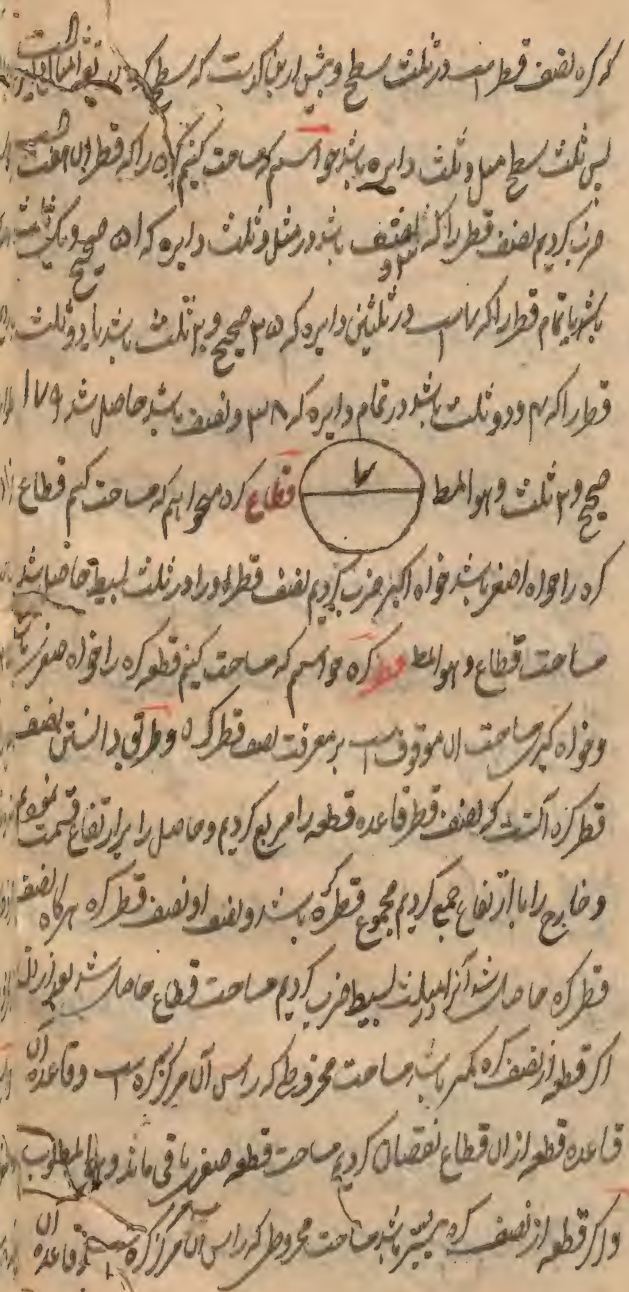 که کره نصف قطر است در ثلث سطح و پیش ازین گذشت که سطح کره
پس ثلث سطح مثل و ثلث دایره باشد خواستیم که مساحت کنیم کره را که قطر آن هفت است
ضرب کردیم نصف قطر را که ۳ و نصف باشد در مثل و ثلث دایره که ۵۱ صحیح و یک ثلث
باشد یا تمام قطر را که ۷ است در ثلثین دایره که ۲۵ صحیح و ۲ ثلث باشد یا دو ثلث
قطر را که ۴ و دو ثلث باشد در تمام دایره که ۳۸ و نصف باشد حاصل شد ۱۷۹
صحیح و ۲ ثلث و هو المط ۷ قطاع کره میخواهیم که مساحت کنیم قطاع
کره را خواه اصغر باشد خواه اکبر ضرب کردیم نصف قطر او را در ثلث بسیط حاصل شد
مساحت قطاع و هو المط کره خواستیم که مساحت کنیم قطعه کره را خواه صغری
و خواه کبری مساحت آن موقوف است بر معرفت نصف قطر کره و طریق دانستن نصف
قطر کره آنست که نصف قطر قاعده قطعه را مربع کردیم و حاصل را بر ارتفاع قسمت نمودیم
و خارج را با ارتفاع جمع کردیم مجموع قطر کره باشد و نصف او نصف قطر کره هرگاه نصف
قطر کره حاصل شد آنرا در ثلث بسیط ضرب کردیم مساحت قطاع حاصل شد بعد از آن
اگر قطعه از نصف کره کمتر باشد مساحت مخروطی که راس آن مرکز کره است و قاعده آن
قاعده قطعه از آن قطاع نقصان کردیم مساحت قطعه صغری باقی ماند و هو المطلوب
و اگر قطعه از نصف کره بیشتر باشد مساحت مخروطی که راس آن مرکز کره است و قاعده آن